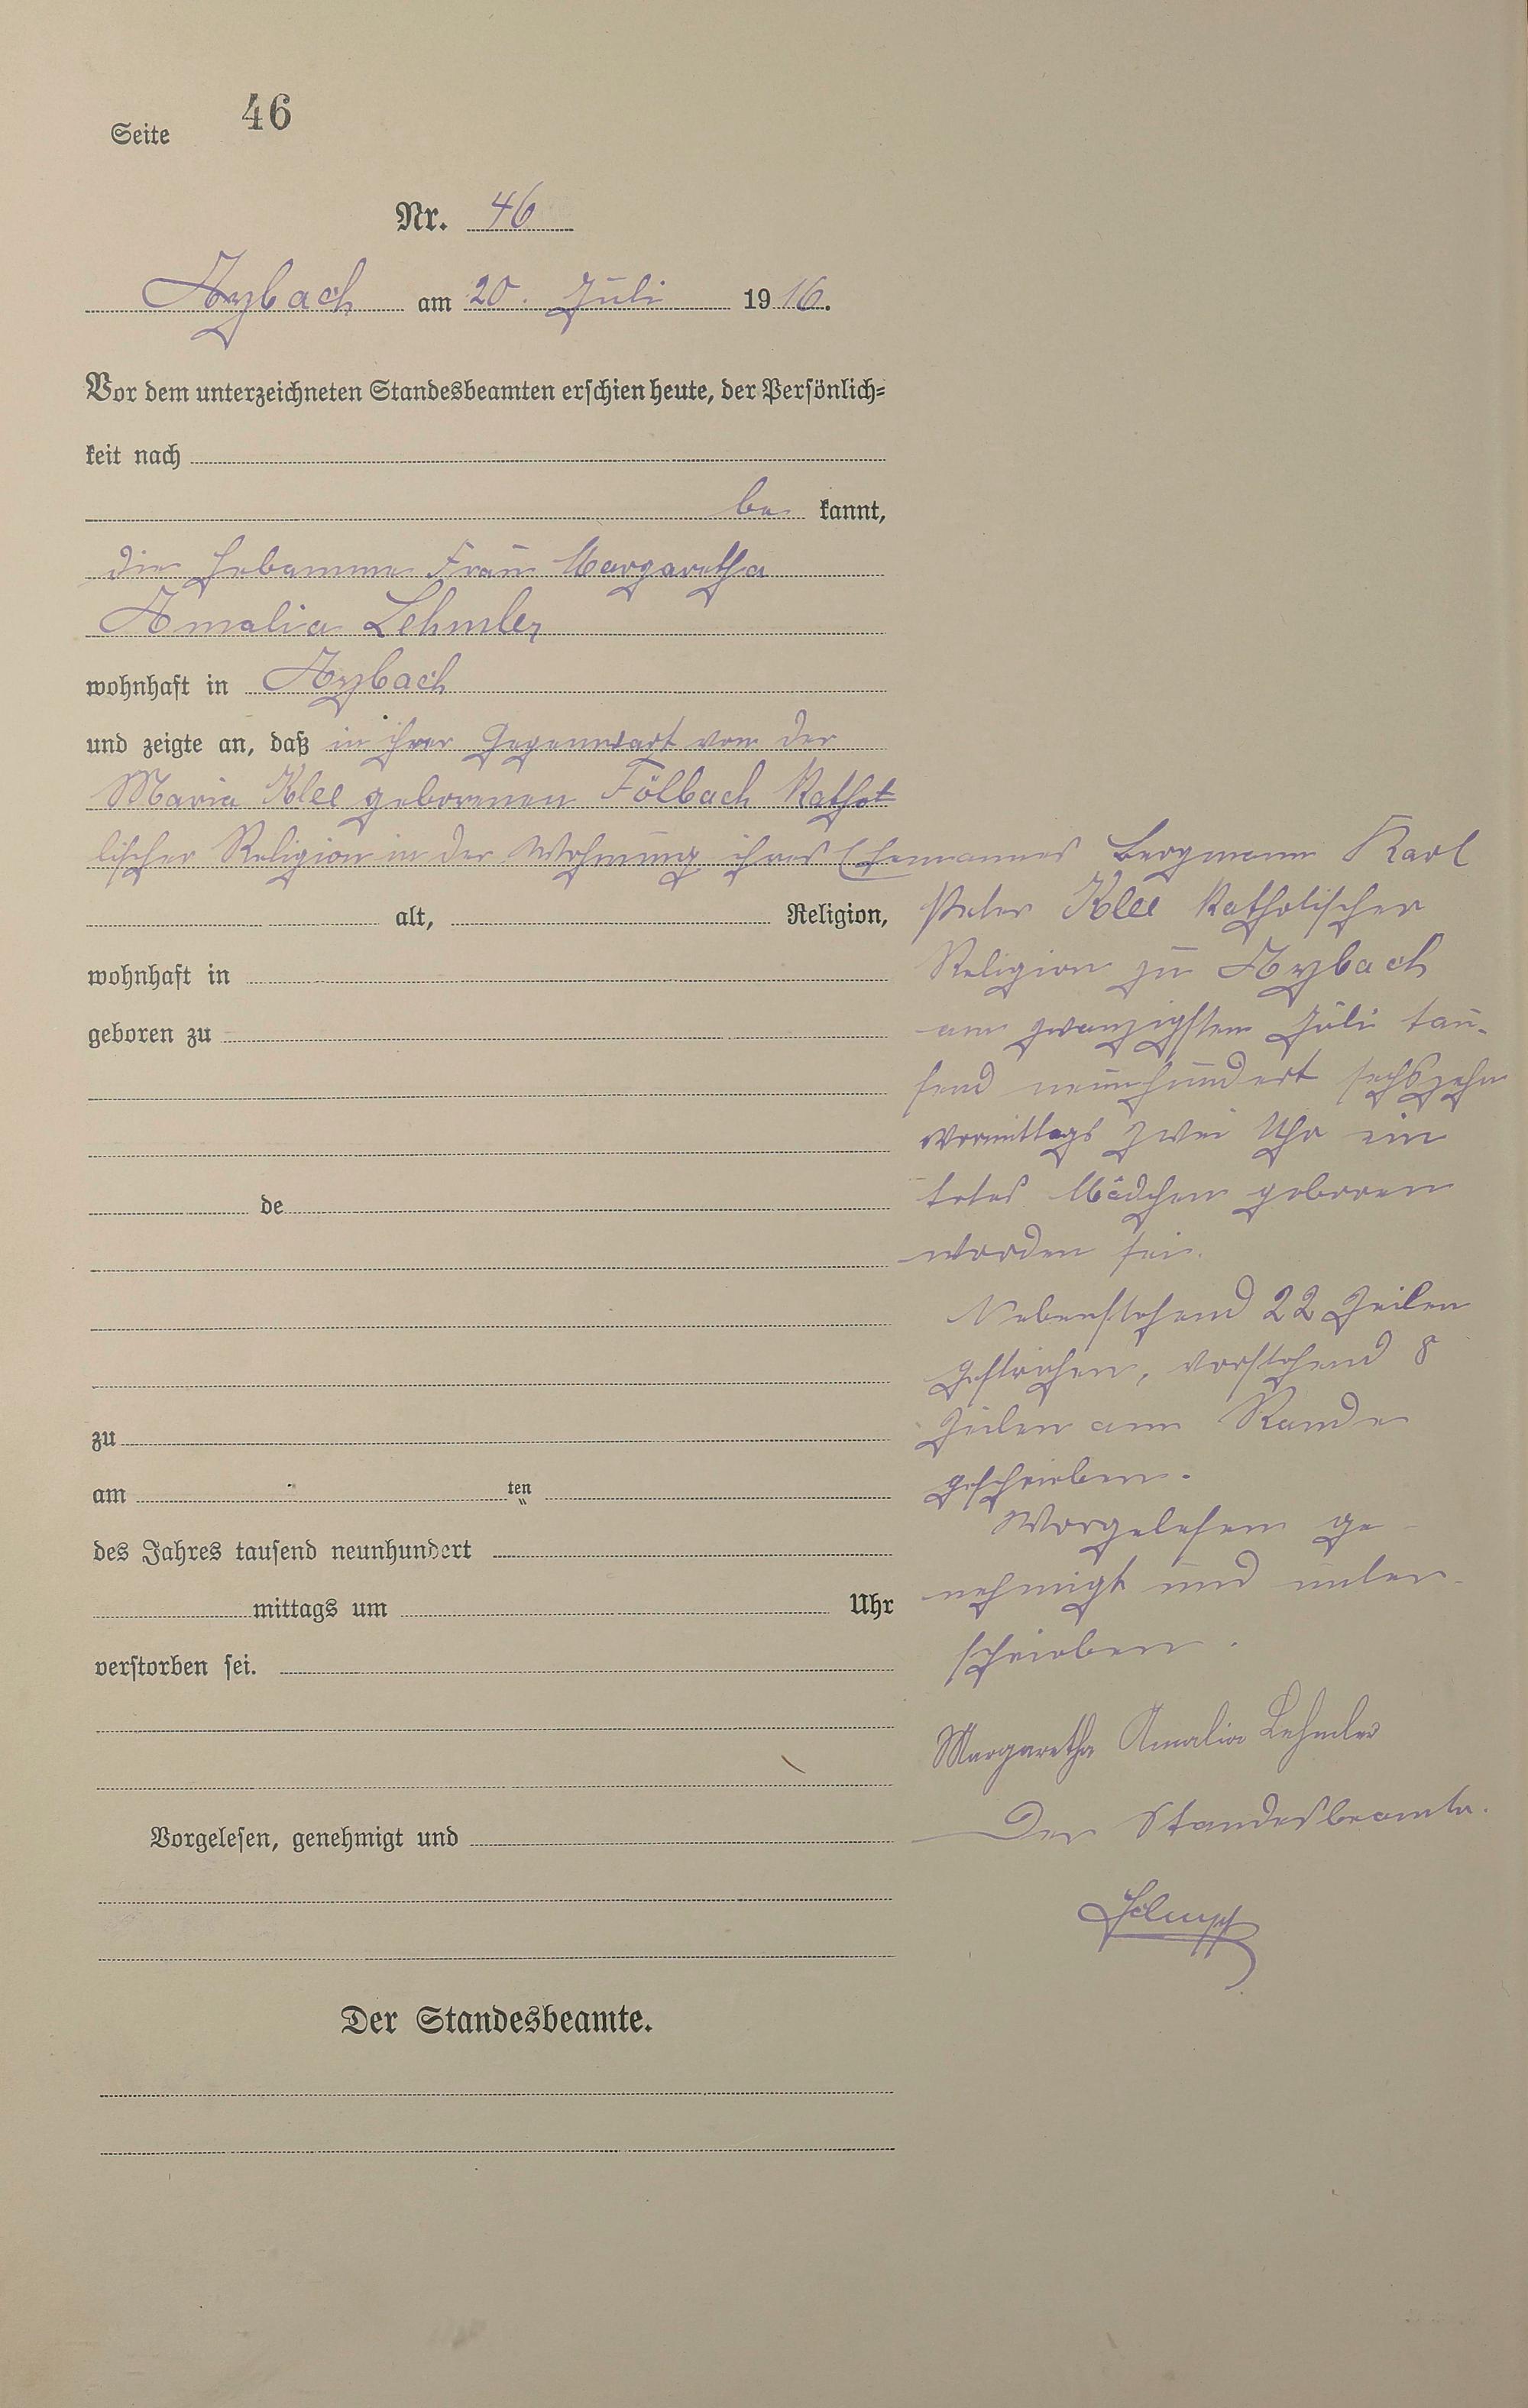 Seite 46
Nr. 46
Arzbach am 20. Juli 1916.
Vor dem unterzeichneten Standesbeamten erschien heute, der Persönlich=
keit nach
be kannt,
die Hebamme Frau Margaretha
Amalia Lehmler
wohnhaft in Arzbach
und zeigte an, daß in ihrer Gegenwart von der
Maria Klee geborenen Fölbach Katho-
lischer Religion in der Wohnung ihres Ehemannes Bergmann Karl
alt, Religion,
wohnhaft in
geboren zu
de
zu
am ten
des Jahres tausend neunhundert
mittags um Uhr
verstorben sei.
Vorgelesen, genehmigt und
Der Standesbeamte.
Peter Klee Katholischer
Religion zu Arzbach
am zwanzigsten Juli tau-
send neunhundert sechszehn
Vormittags zwei Uhr ein
totes Mädchen geboren
worden sei.
Nebenstehend 22 Zeilen
gestrichen, vorstehend 8
Zeilen am Rande
geschrieben.
Vorgelesen ge-
nehmigt und unter-
schrieben.
Margaretha Amalia Lehmler
Der Standesbeamte.